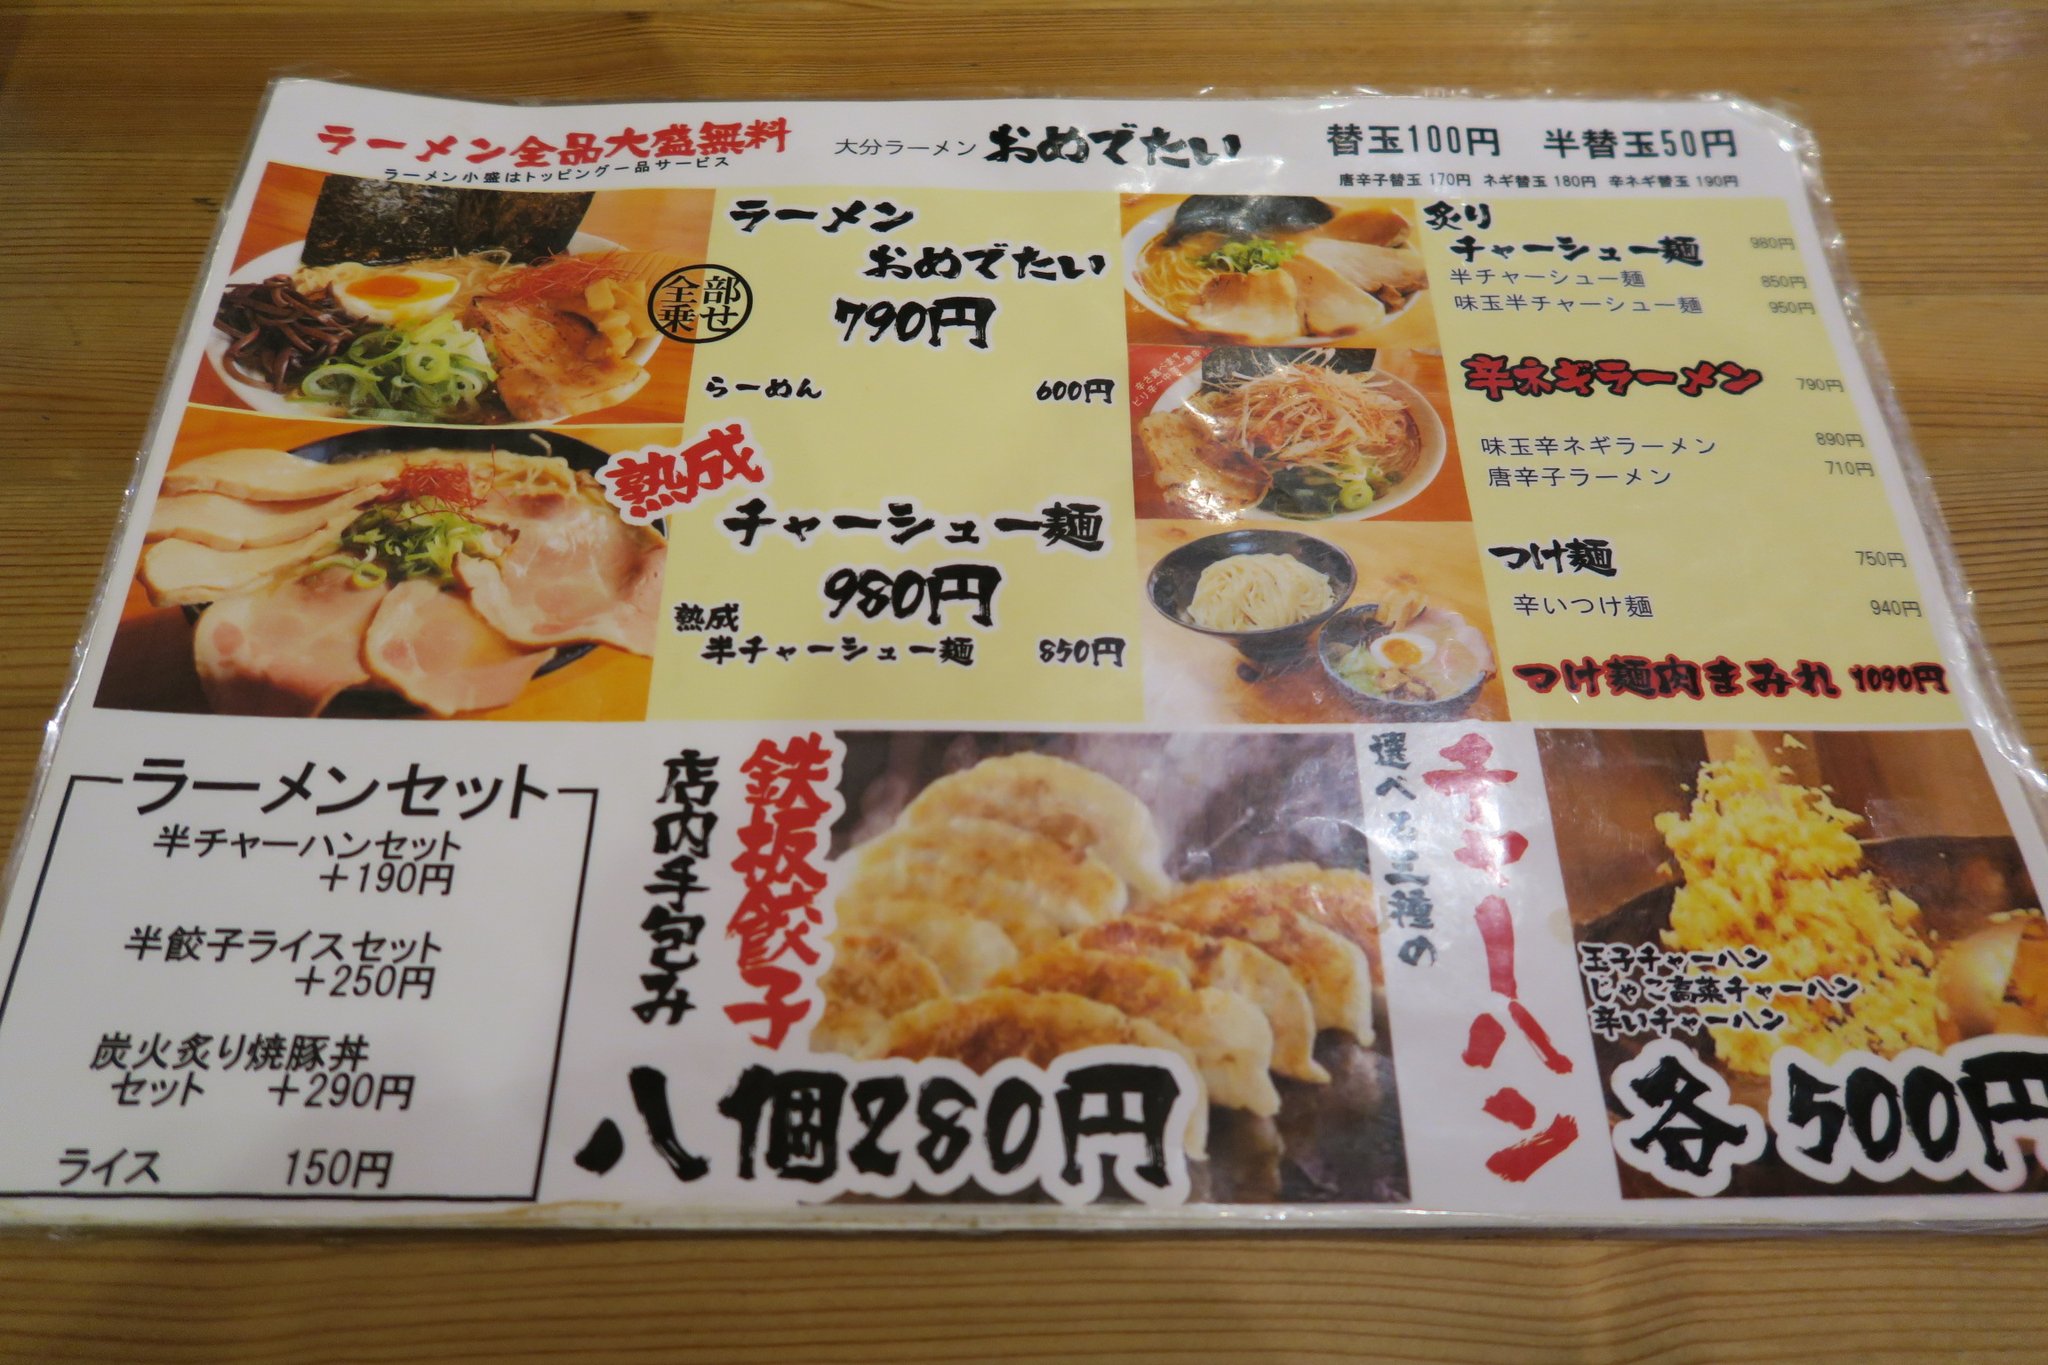 ラーメン全品大盛無料
ラーメン小盛はトッピング一品サービス
大分ラーメン おめでたい
替玉100円 半替玉50円
唐辛子替玉 170円 ネギ替玉 180円 辛ネギ替玉 190円
全部乗せ
ラーメン
おめでたい
790円
らーめん 600円
熟成
チャーシュー麺
980円
熟成
半チャーシュー麺 850円
炙り
チャーシュー麺 980円
半チャーシュー麺 850円
味玉半チャーシュー麺 950円
辛さ選べます
ピリ辛〜中辛〜激辛
辛ネギラーメン 790円
味玉辛ネギラーメン 890円
唐辛子ラーメン 710円
つけ麺 750円
辛いつけ麺 940円
つけ麺肉まみれ 1090円
ラーメンセット
半チャーハンセット
+190円
半餃子ライスセット
+250円
炭火炙り焼豚丼
セット +290円
ライス 150円
鉄板餃子
店内手包み
八個280円
選べる三種の
チャーハン
玉子チャーハン
じゃこ高菜チャーハン
辛いチャーハン
各500円